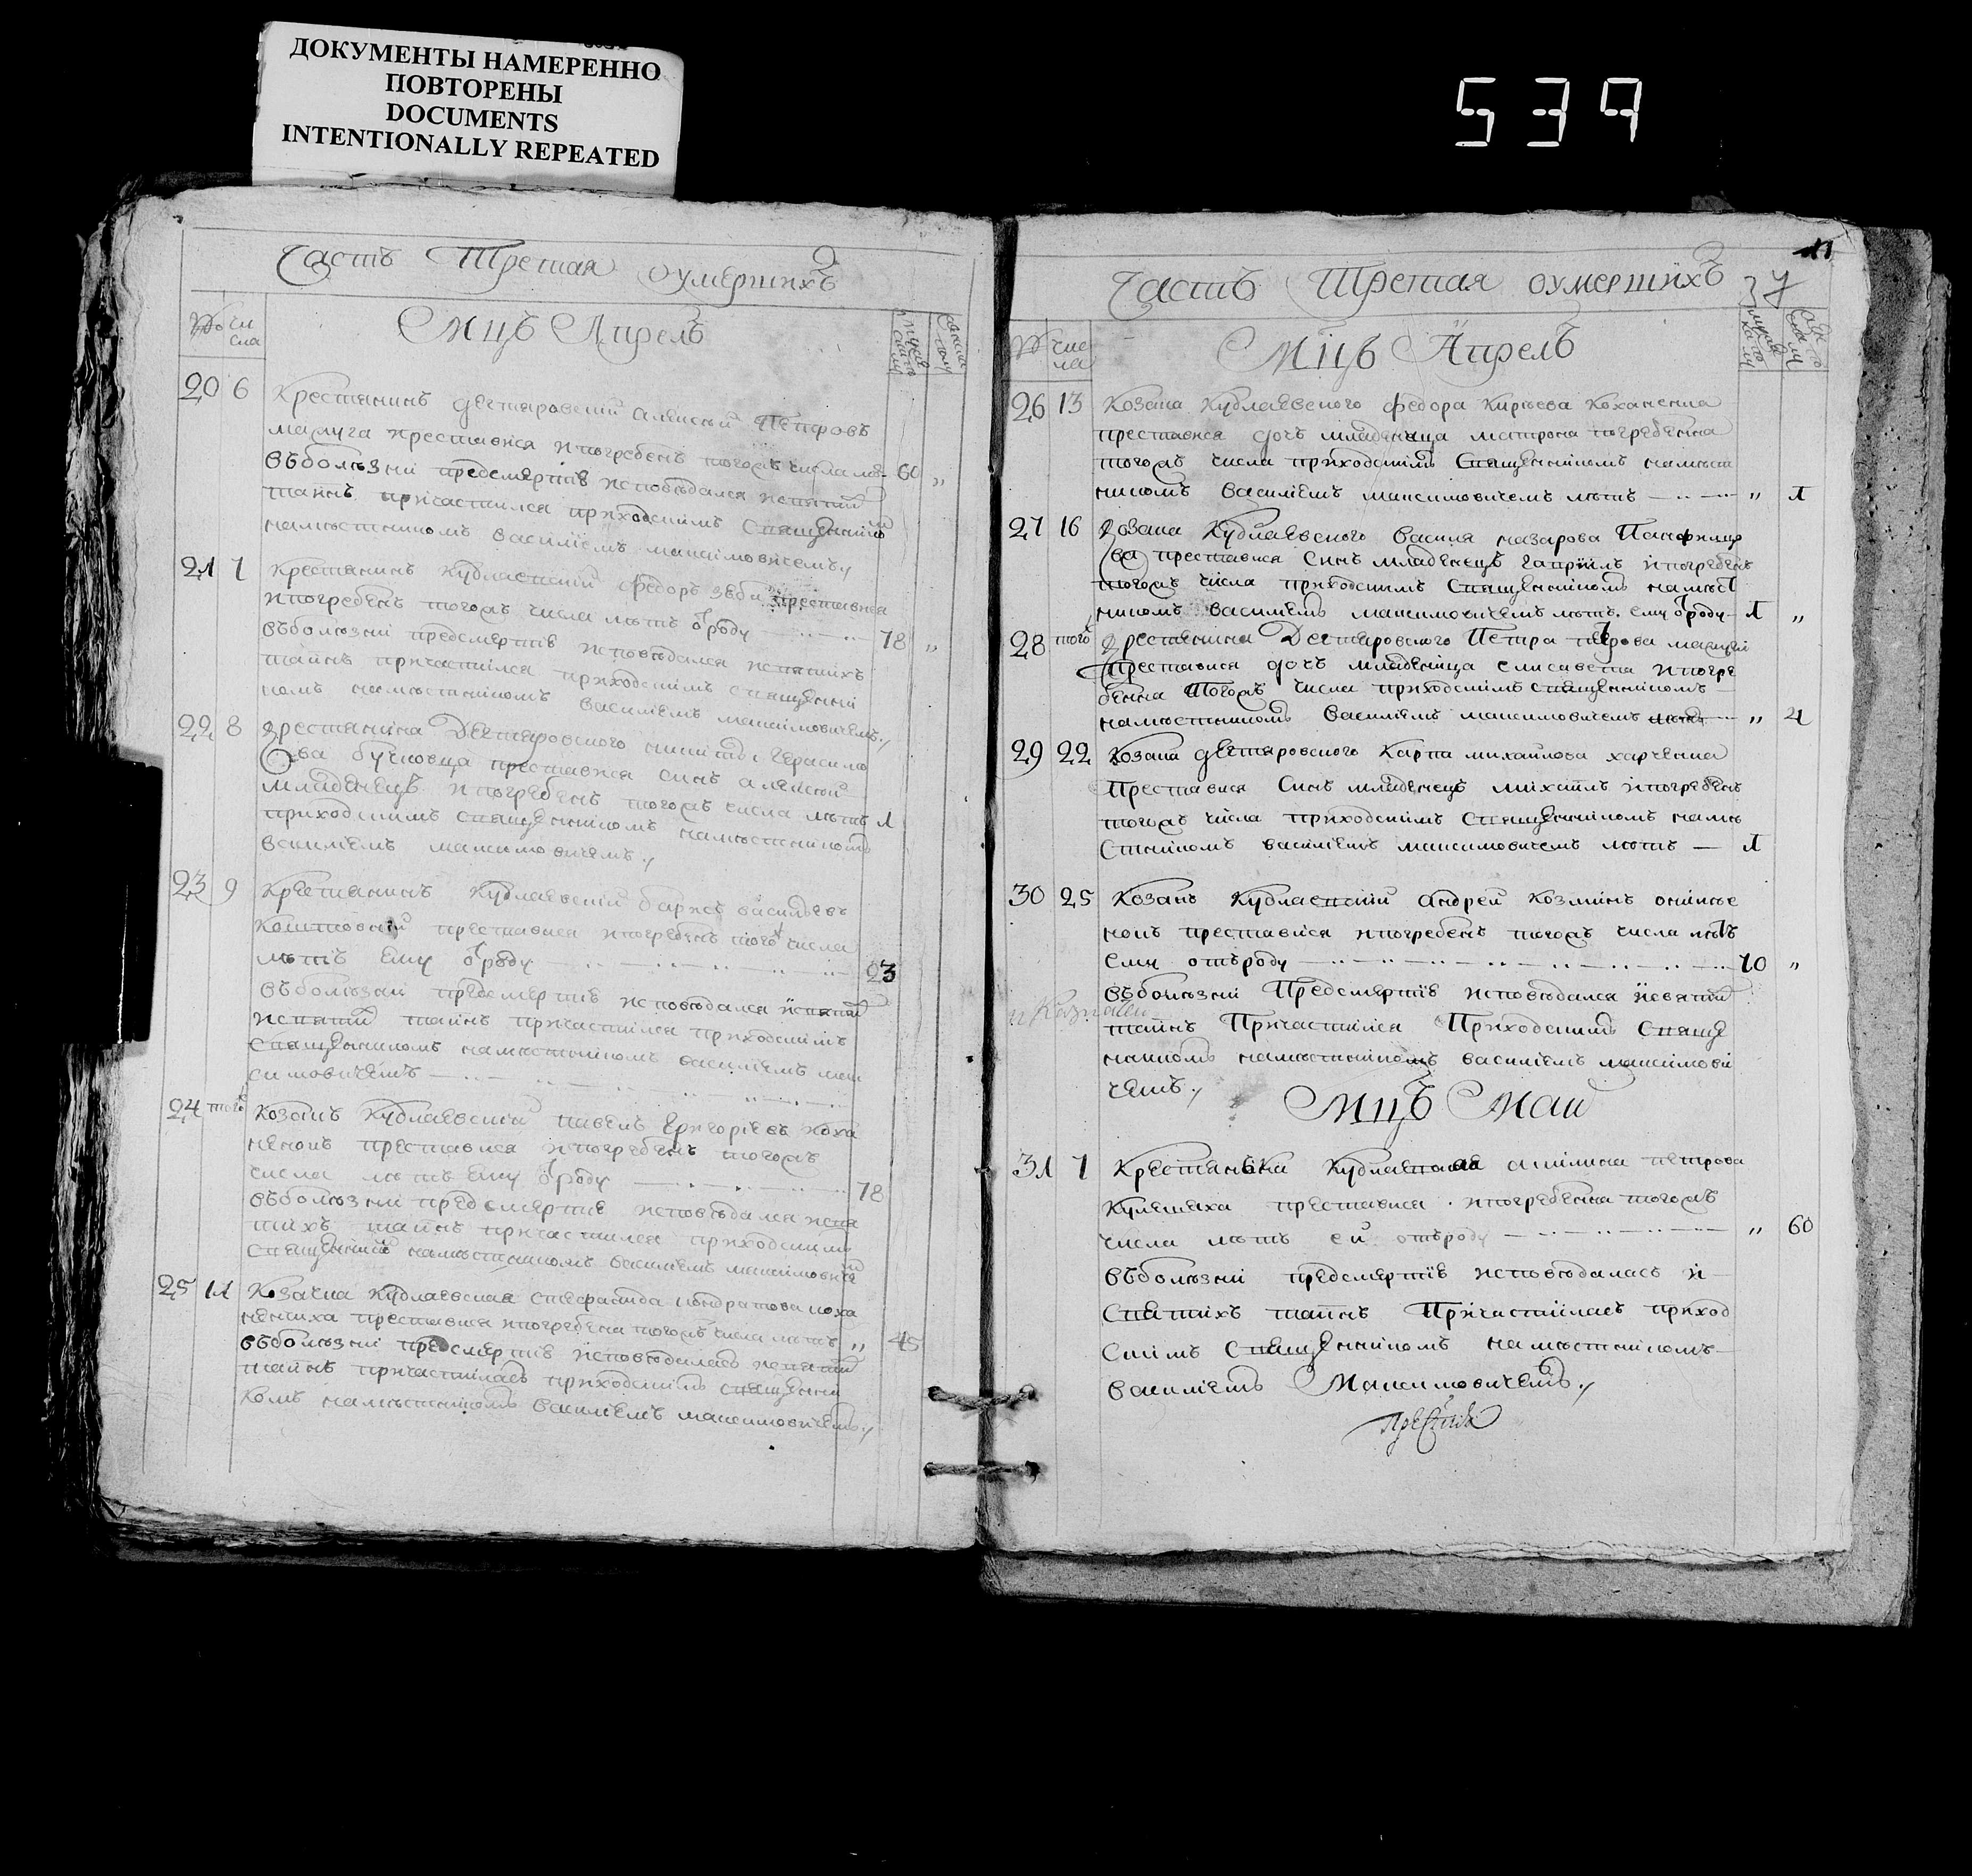 ДОКУМЕНТЫ НАМЕРЕННО
ПОВТОРЕНЫ
DOCUMENTS
INTENTIONALLY REPEATED
539
Часть Третая оумершихъ
№ чи
сла
Мцъ Апрель
20 6 Крестянинъ Дегтяровскій Алексѣй Петровъ
преставися и погребенъ тогожъ числа 60 „
въболѣзни предсмертіѣ исповѣдался
таинъ причастился приходскимъ Священни
намѣстникомъ Василіемъ Максимовичемъ
21 7 Крестянинъ Кублаевскій Федоръ преставися
и погребенъ тогожъ числа лѣтъ ѿроду 78 „
въболѣзни предсмертіѣ исповѣдался исвятихъ
таинъ причастился приходскимъ священни
комъ намѣстникомъ Василіемъ Максимовичемъ
22 8 Крестянина Дегтяровского Никити Герасимо
ва преставися синъ Алексѣй
младенецъ и погребенъ тогожъ числа лѣтъ 1
приходскимъ священникомъ намѣстникомъ
Василіемъ Максимовичемъ
23 9 Крестянинъ Кублаевскій Васильевъ
преставися и погребенъ того числа
лѣтъ ему ѿроду 23
въболѣзни предсмертіѣ исповѣдался
таинъ причастился приходскимъ
Священникомъ намѣстникомъ Василіемъ Мак
симовичемъ
24 того Козакъ Кублаевскій Павелъ Григоріевъ Коха
ненокъ преставися и погребенъ тогожъ
числа лѣтъ ему ѿроду 78
въболѣзни предсмертіѣ исповѣдался исвя
тихъ таинъ причастился приходскимъ
Священни намѣстникомъ Василіемъ Максимовиче
25 11 Козачка Кублаевская Стефанида Кондратова Коха
ненчиха преставися и погребена тогожъ числа лѣтъ „ 45
въболѣзни предсмертіѣ исповѣдалась
таинъ причастилась приходскимъ священни
комъ намѣстникомъ Василіемъ Максимовичемъ
11
Часть Третая оумершихъ 37
№ чис
ла
Мцъ Апрель
26 13 Козака Кублаевского Федора Коханенка
преставися дочъ младеница Матрона погребенна
тогожъ числа приходскимъ Священникомъ намѣст
никомъ Василіемъ Максимовичемъ лѣтъ „ 1
27 16 Козака Кублаевского Василя Назарова
ва преставися Синъ младенецъ Гавріилъ и погребенъ
тогожъ числа приходскимъ Священникомъ намѣст
никомъ Василіемъ Максимовичемъ лѣтъ ему ѿроду 1 „
28 того Крестянина Дегтяровского Петра Петрова
преставися дочъ младеница Елисавета и погре
бенна тогожъ числа приходскимъ священникомъ
намѣстникомъ Василіемъ Максимовичемъ „ 4
29 22 Козака Дегтяровского Карпа Михайлова Харченка
Преставися Синъ младенецъ Михаилъ и погребенъ
тогожъ числа приходскимъ Священникомъ намѣ
стникомъ Василіемъ Максимовичемъ лѣтъ 1
30 25 Козакъ Кублаевскій Андрей Козминъ
нокъ преставися и погребенъ тогожъ числа лѣтъ
ему отъроду 70 „
въболѣзни Предсмертіѣ исповѣдался исвятихъ
таинъ Причастился Приходскимъ Свяще
нникомъ намѣстникомъ Василіемъ Максимови
чемъ
Мцъ Маи
31 7 Крестянька Кублаевская Акилина Петрова
Кулешиха преставися и погребенна тогожъ
числа лѣтъ ей отъроду „ 60
въболѣзни предсмертіѣ исповѣдалась и
Святихъ таинъ Причастилась приход
скимъ Священникомъ намѣстникомъ
Василіемъ Максимовичемъ